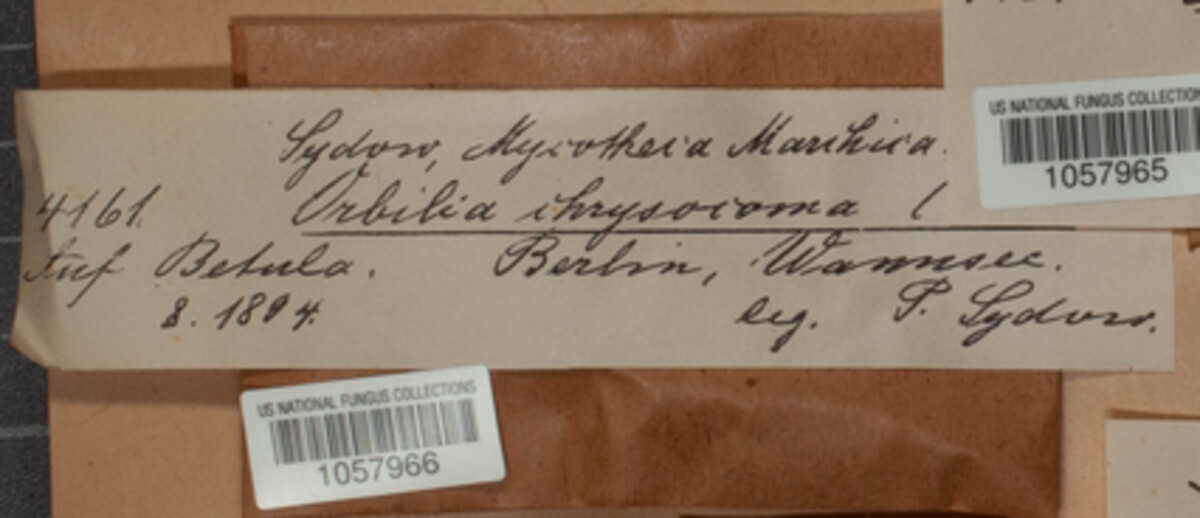 Sydow, Mycotheca Marchica.
4161. Orbilia chrysocoma (
Auf Betula. Berlin, Wannsee.
8. 1894. leg. P. Sydow.
US NATIONAL FUNGUS COLLECTIONS
1057965
US NATIONAL FUNGUS COLLECTIONS
1057966